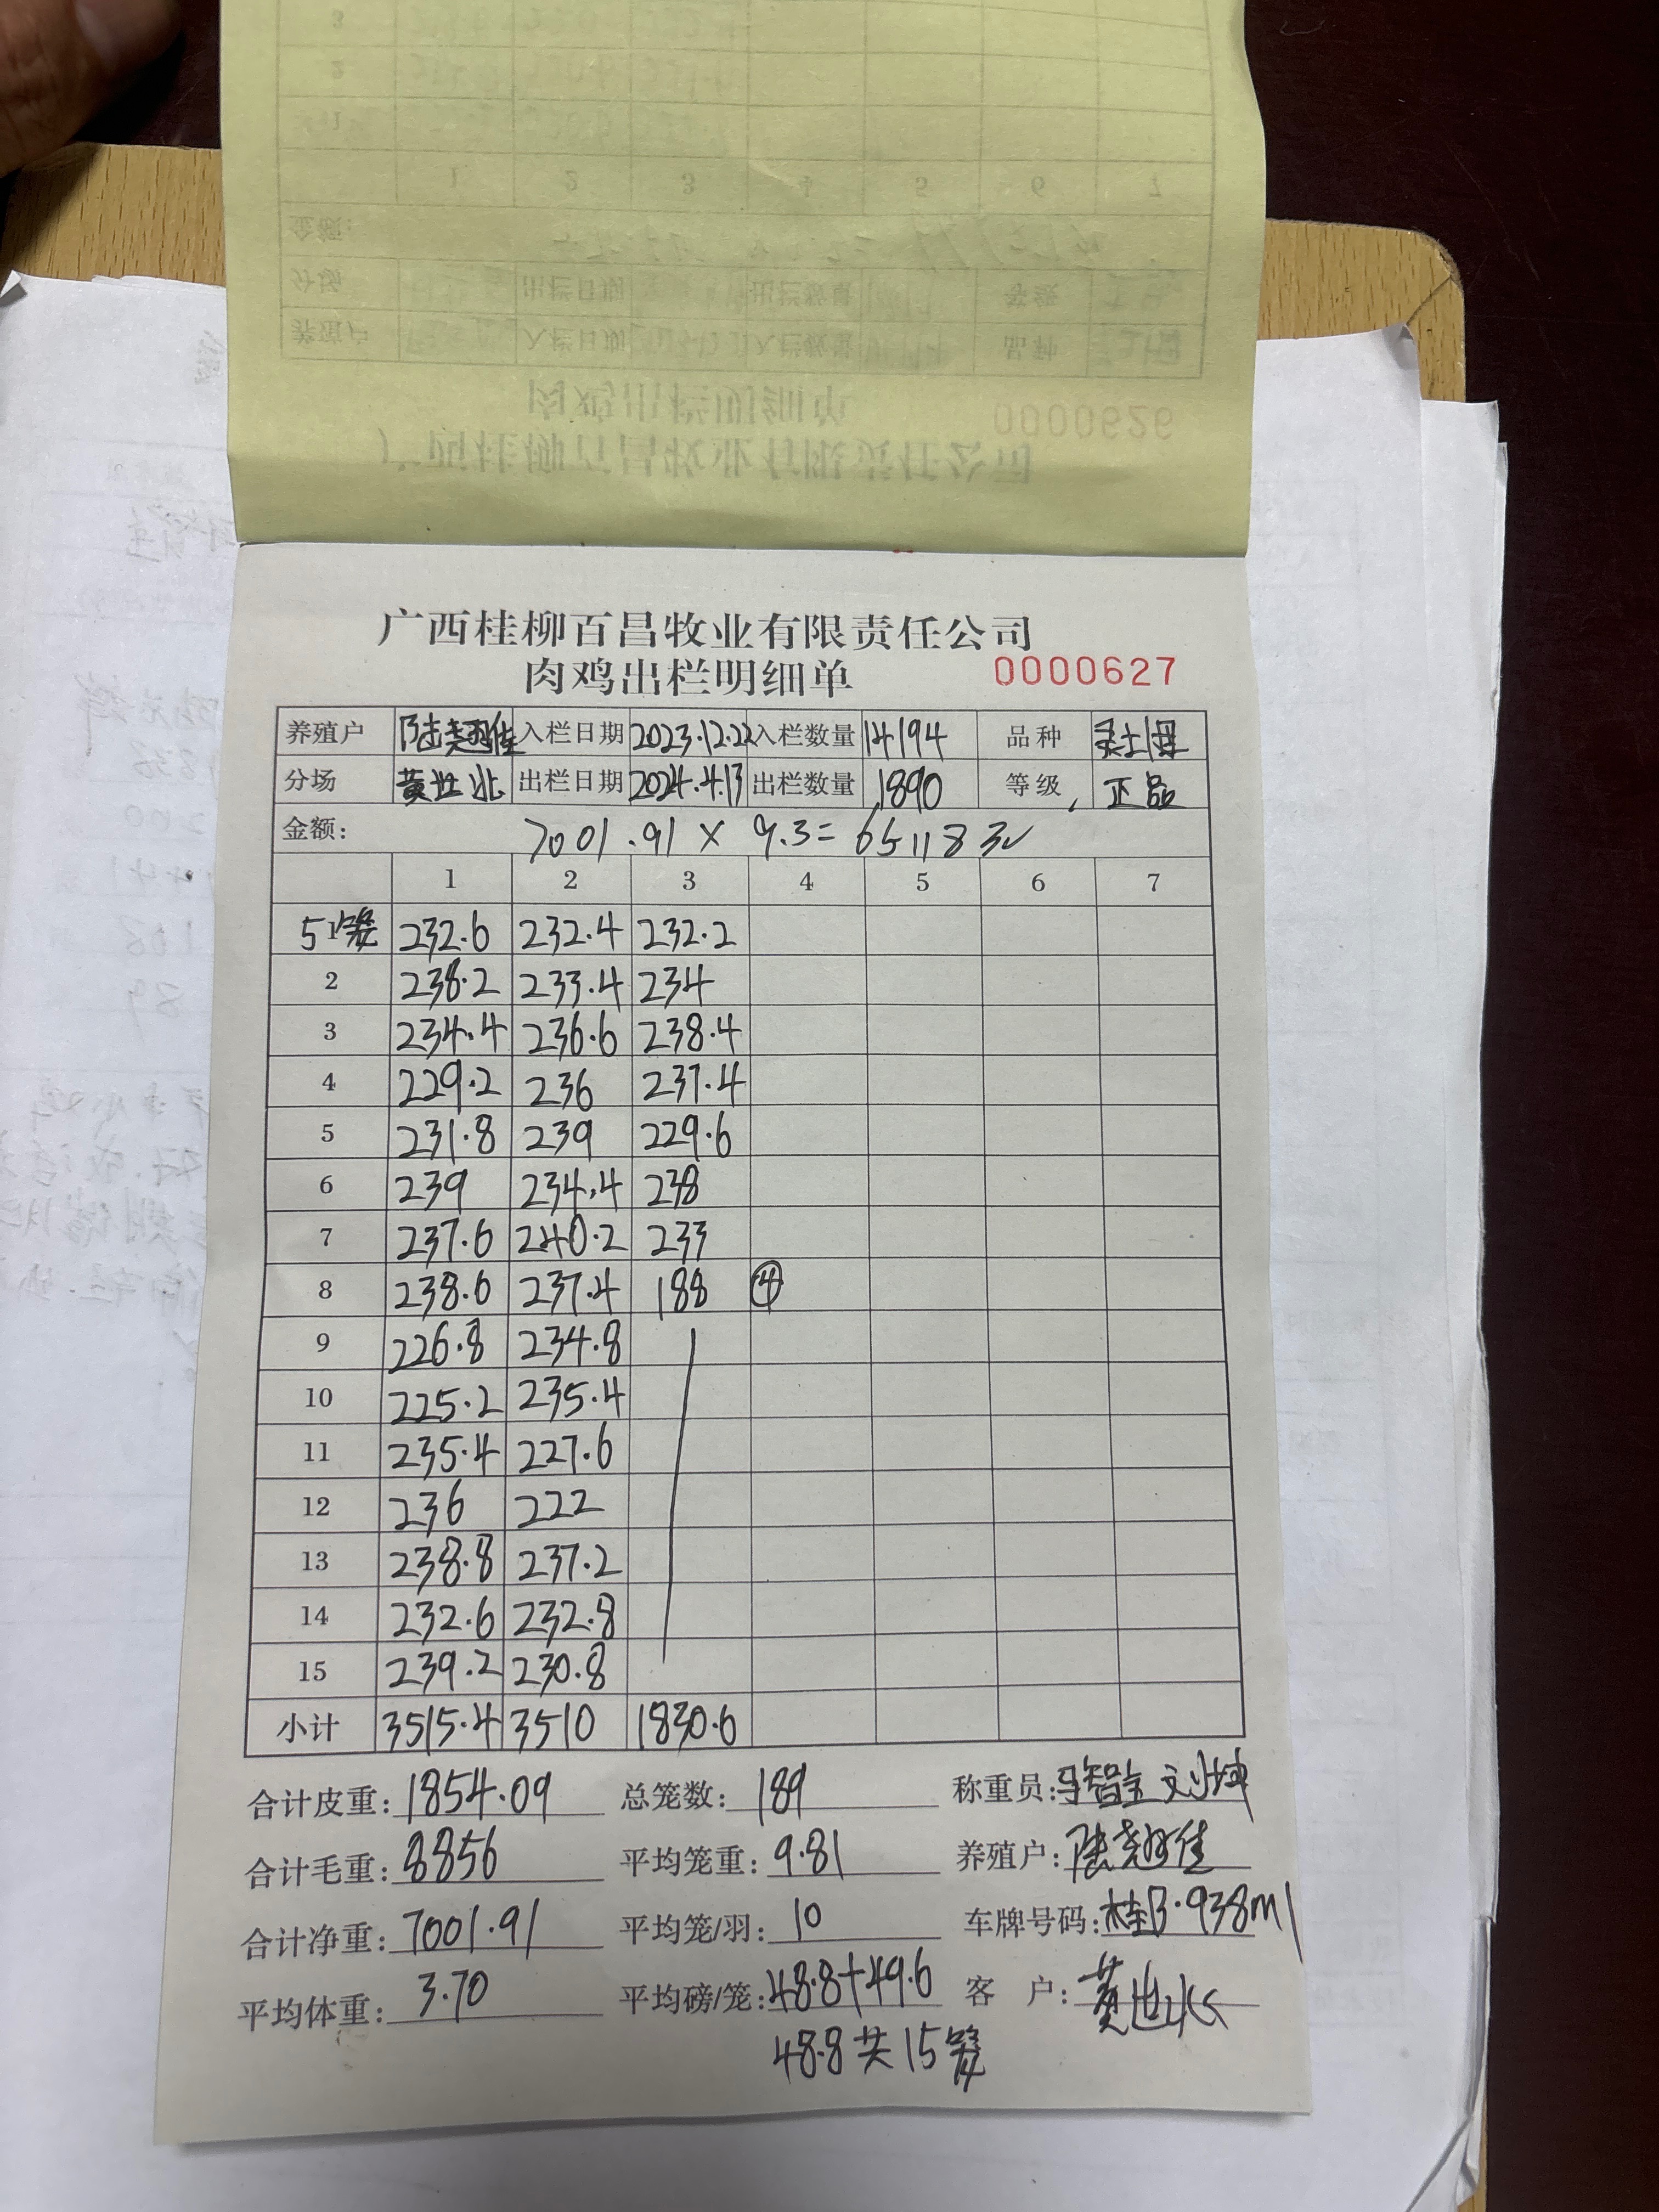 广西桂柳百昌牧业有限责任公司
肉鸡出栏明细单 0000627
养殖户 入栏日期 2023.12.22 入栏数量 14194 品种 土
分场 黄世 出栏日期 2024.4.13 出栏数量 1890 等级 正品
金额: 7001.91 × 9.3 = 65118元
1 2 3 4 5 6 7
5笼 1 232.6 232.4 232.2
2 238.2 233.4 234
3 234.4 236.6 238.4
4 229.2 236 237.4
5 231.8 239 229.6
6 239 234.4 238
7 237.6 240.2 233
8 238.6 237.4 188 ④
9 226.8 234.8
10 225.2 235.4
11 235.4 227.6
12 236 222
13 238.8 237.2
14 232.6 232.8
15 239.2 230.8
小计 3515.4 3510 1830.6
合计皮重: 1854.09 总笼数: 189 称重员:
合计毛重: 8856 平均笼重: 9.81 养殖户:
合计净重: 7001.91 平均笼/羽: 10 车牌号码: 桂B·938M1
平均体重: 3.70 平均磅/笼: 48.8+49.6 客户: 黄世
48.8 共15笼